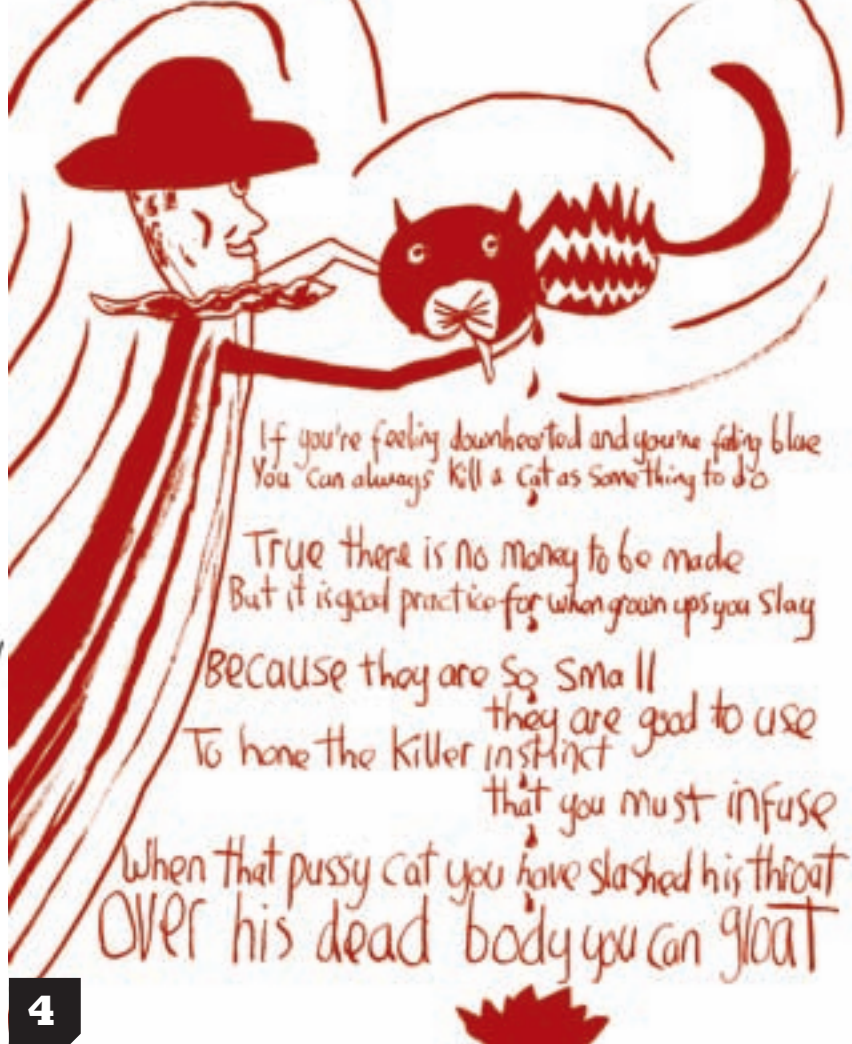 If you're feeling downhearted and you're feeling blue
You can always kill a cat as something to do
True there is no money to be made
But it is good practice for when grown ups you slay
Because they are so small
they are good to use
To hone the killer instinct
that you must infuse
When that pussy cat you have slashed his throat
Over his dead body you can gloat
4